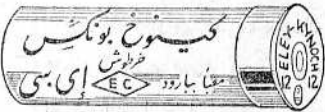 كينوخ بونكس
خرطوش
معبأ ببارود EC إي سي
ELEY-KYNOCH
12 12